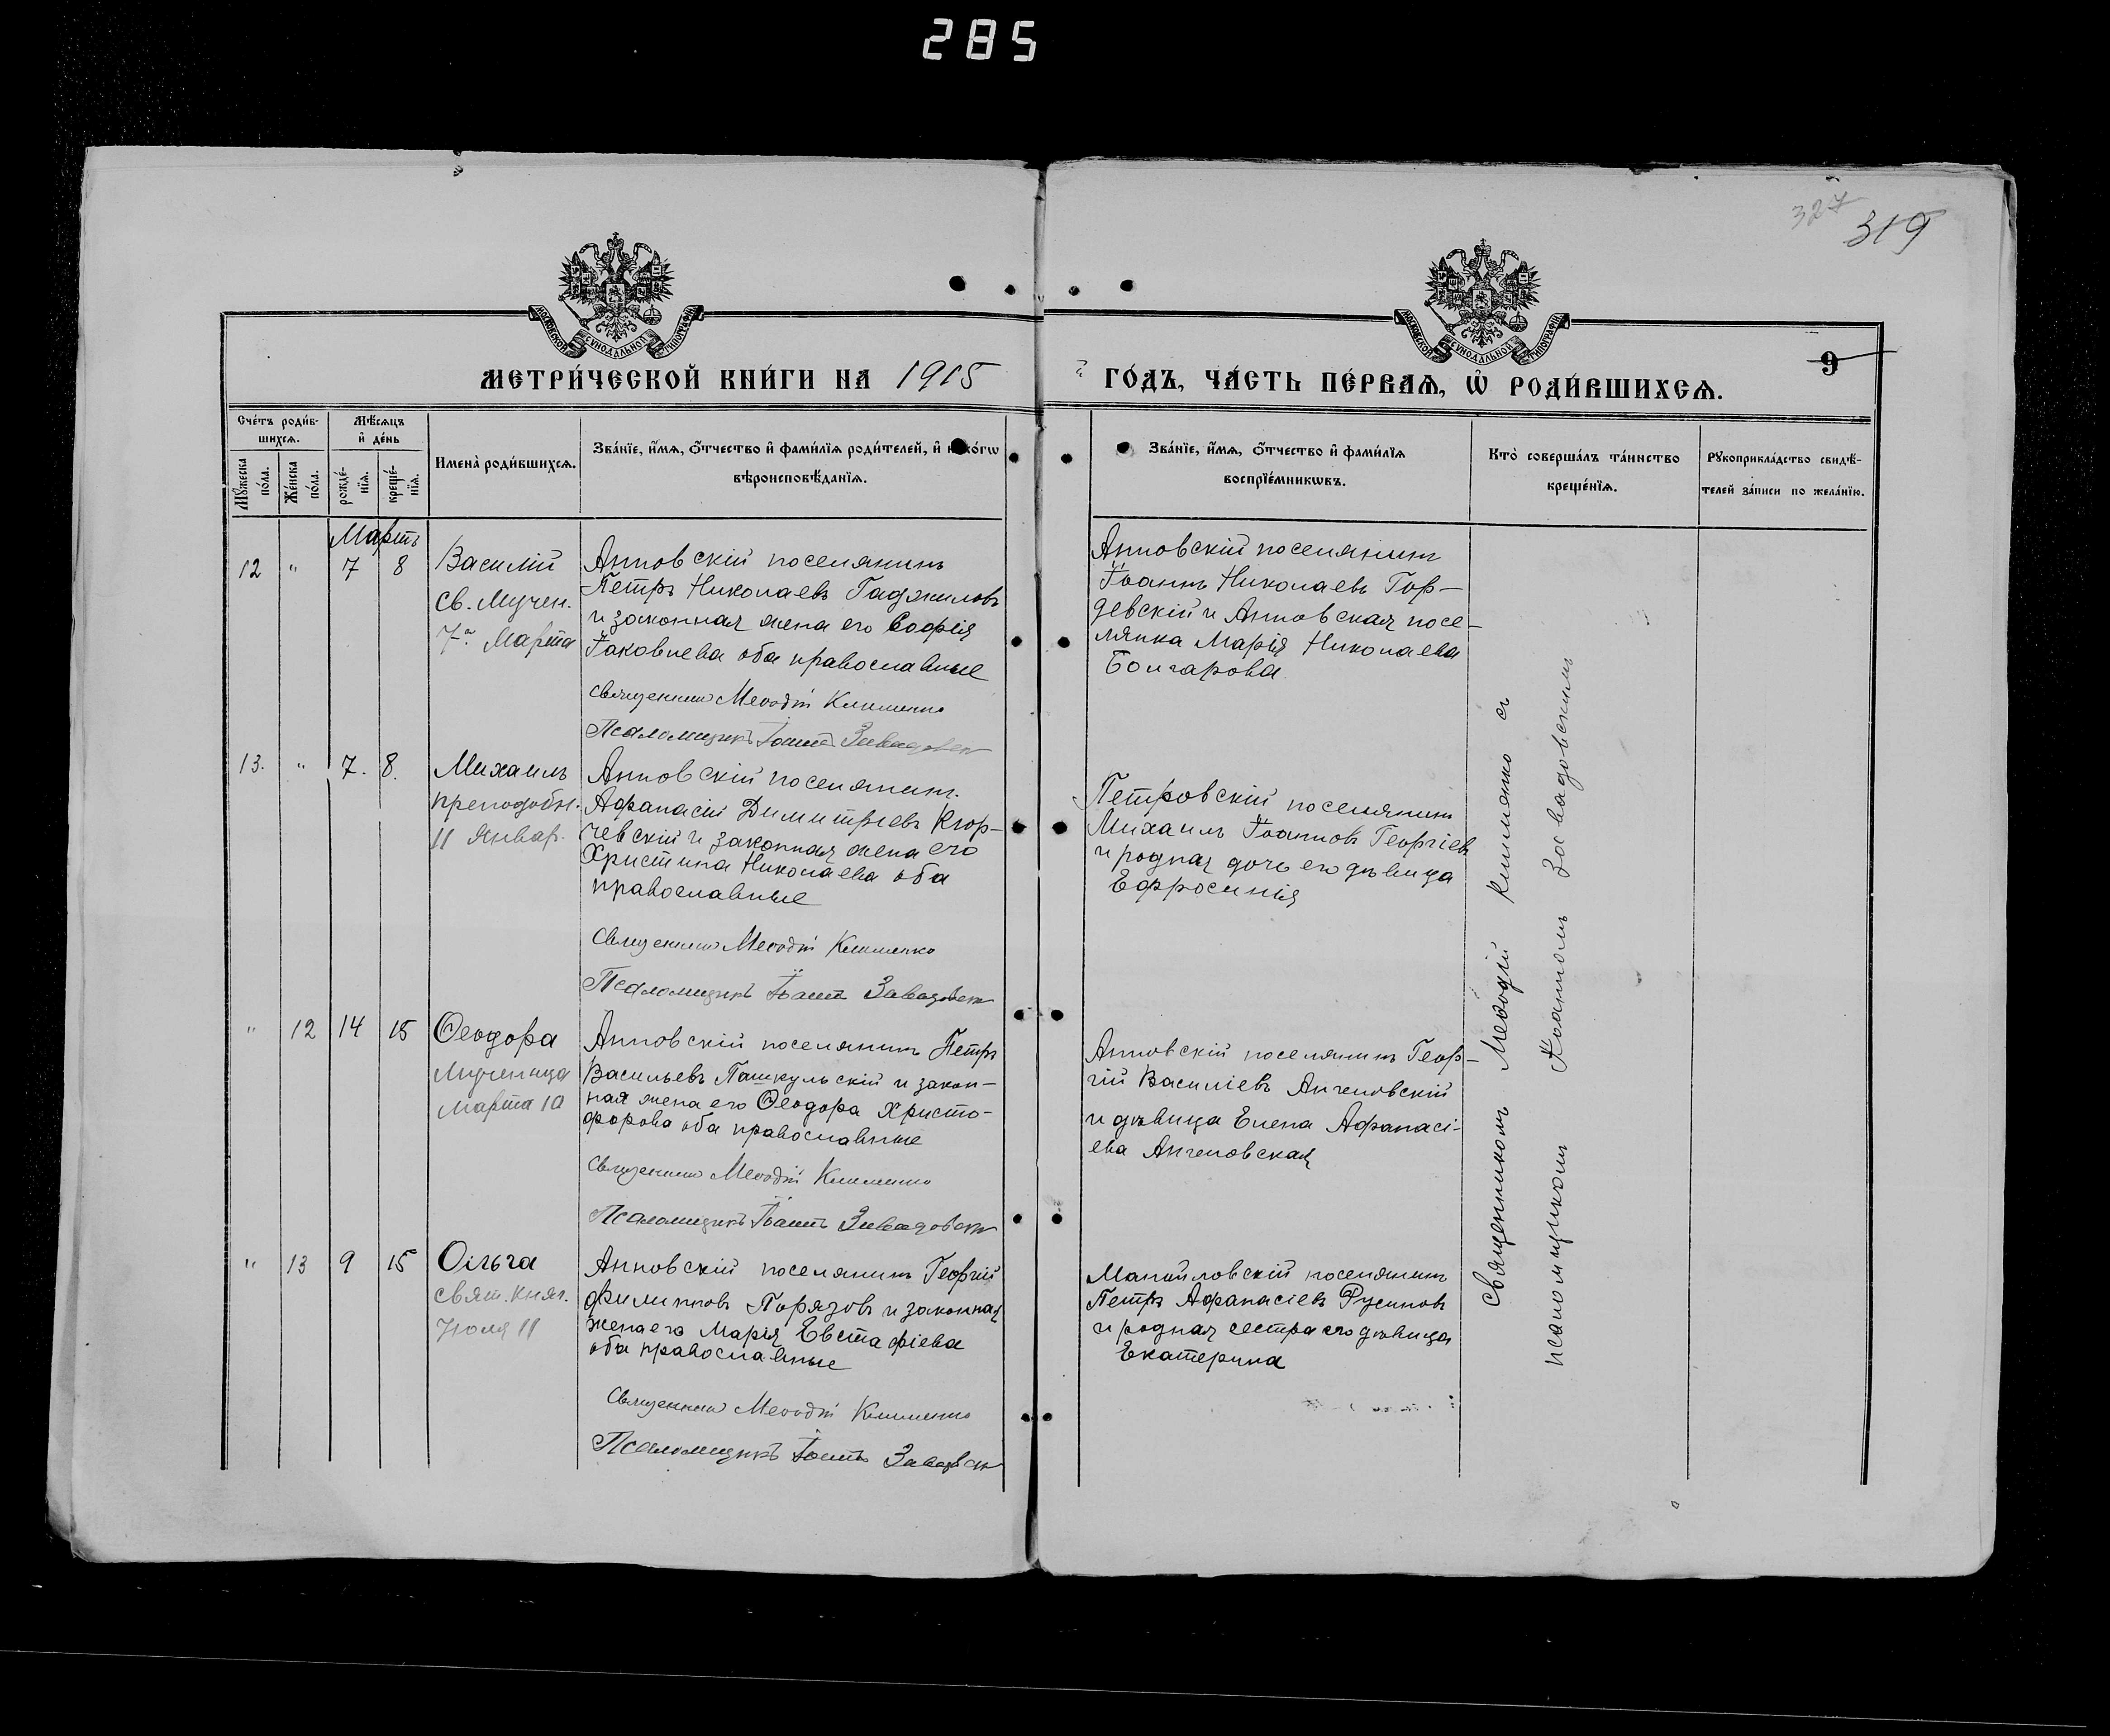 285
327
319
МОСКОВСКОЙ СѴНОДАЛЬНОЙ ТИПОГРАФІИ
МОСКОВСКОЙ СѴНОДАЛЬНОЙ ТИПОГРАФІИ
МЕТРИ́ЧЕСКОЙ КНИ́ГИ НА 1915
ГО́ДЪ, ЧА́СТЬ ПЕ́РВАѦ, Ѡ҆ РОДИ́ВШИХСѦ.
9
Сче́тъ роди́в-
шихсѧ.
Мѣ́сѧцъ
и҆ де́нь
Мꙋ́жеска
по́ла.
Же́нска
по́ла.
рожде́-
нїѧ.
креще́-
нїѧ.
Имена̀ роди́вшихсѧ.
Зва́нїе, и҆́мѧ, ѻ҆́тчество и҆ фами́лїѧ роди́телей, и҆ како́гѡ
вѣроисповѣ́данїѧ.
Зва́нїе, и҆́мѧ, ѻ҆́тчество и҆ фами́лїѧ
воспрїе́мникѡвъ.
Кто̀ соверша́лъ та́инство
креще́нїѧ.
Рꙋкоприкла́дство свидѣ́-
телей за́писи по жела́нїю.
Мартъ
12 " 7 8
Василій
св. Мучен.
7го Марта
Анновскій поселянинъ
Петръ Николаевъ Гаджиловъ
и законная жена его Софія
Іаковлева оба православные
Священникъ Меѳодій Клименко
Псаломщикъ Іоаннъ Завадовск
Анновскій поселянинъ
Іоаннъ Николаевъ Гор-
девскій и Анновская посе-
лянка Марія Николаева
Болгарова
13. " 7. 8.
Михаилъ
преподобн.
11 Январ.
Анновскій поселянин.
Афанасій Димитріевъ Кюр-
чевскій и законная жена его
Христина Николаева оба
православные
Священникъ Меѳодій Клименко
Псаломщикъ Іоаннъ Завадовск
Петровскій поселянинъ
Михаилъ Іоанновъ Георгіевъ
и родная дочь его дѣвица
Ефросинія
" 12 14 15
Ѳеодора
Мученица
Марта 10
Анновскій поселянинъ Петръ
Васильевъ Пашкульскій и закон-
ная жена его Ѳеодора Христо-
форова оба православные
Священникъ Меѳодій Клименко
Псаломщикъ Іоаннъ Завадовск
Анновскій поселянинъ Геор-
гій Василіевъ Ангеловскій
и дѣвица Елена Афанасі-
ева Ангеловская
" 13 9 15
Ольга
свят. княг.
Іюля 11
Анновскій поселянинъ Георгій
Филипповъ Порязовъ и законная
жена его Марія Евстафіева
оба православные
Священникъ Меѳодій Клименко
Псаломщикъ Іоаннъ Завадовск
Манойловскій поселянинъ
Петръ Афанасіевъ Русиновъ
и родная сестра его дѣвица
Екатерина
Священникомъ Меѳодій Клименко съ
псаломщикомъ Іоанномъ Завадовскимъ